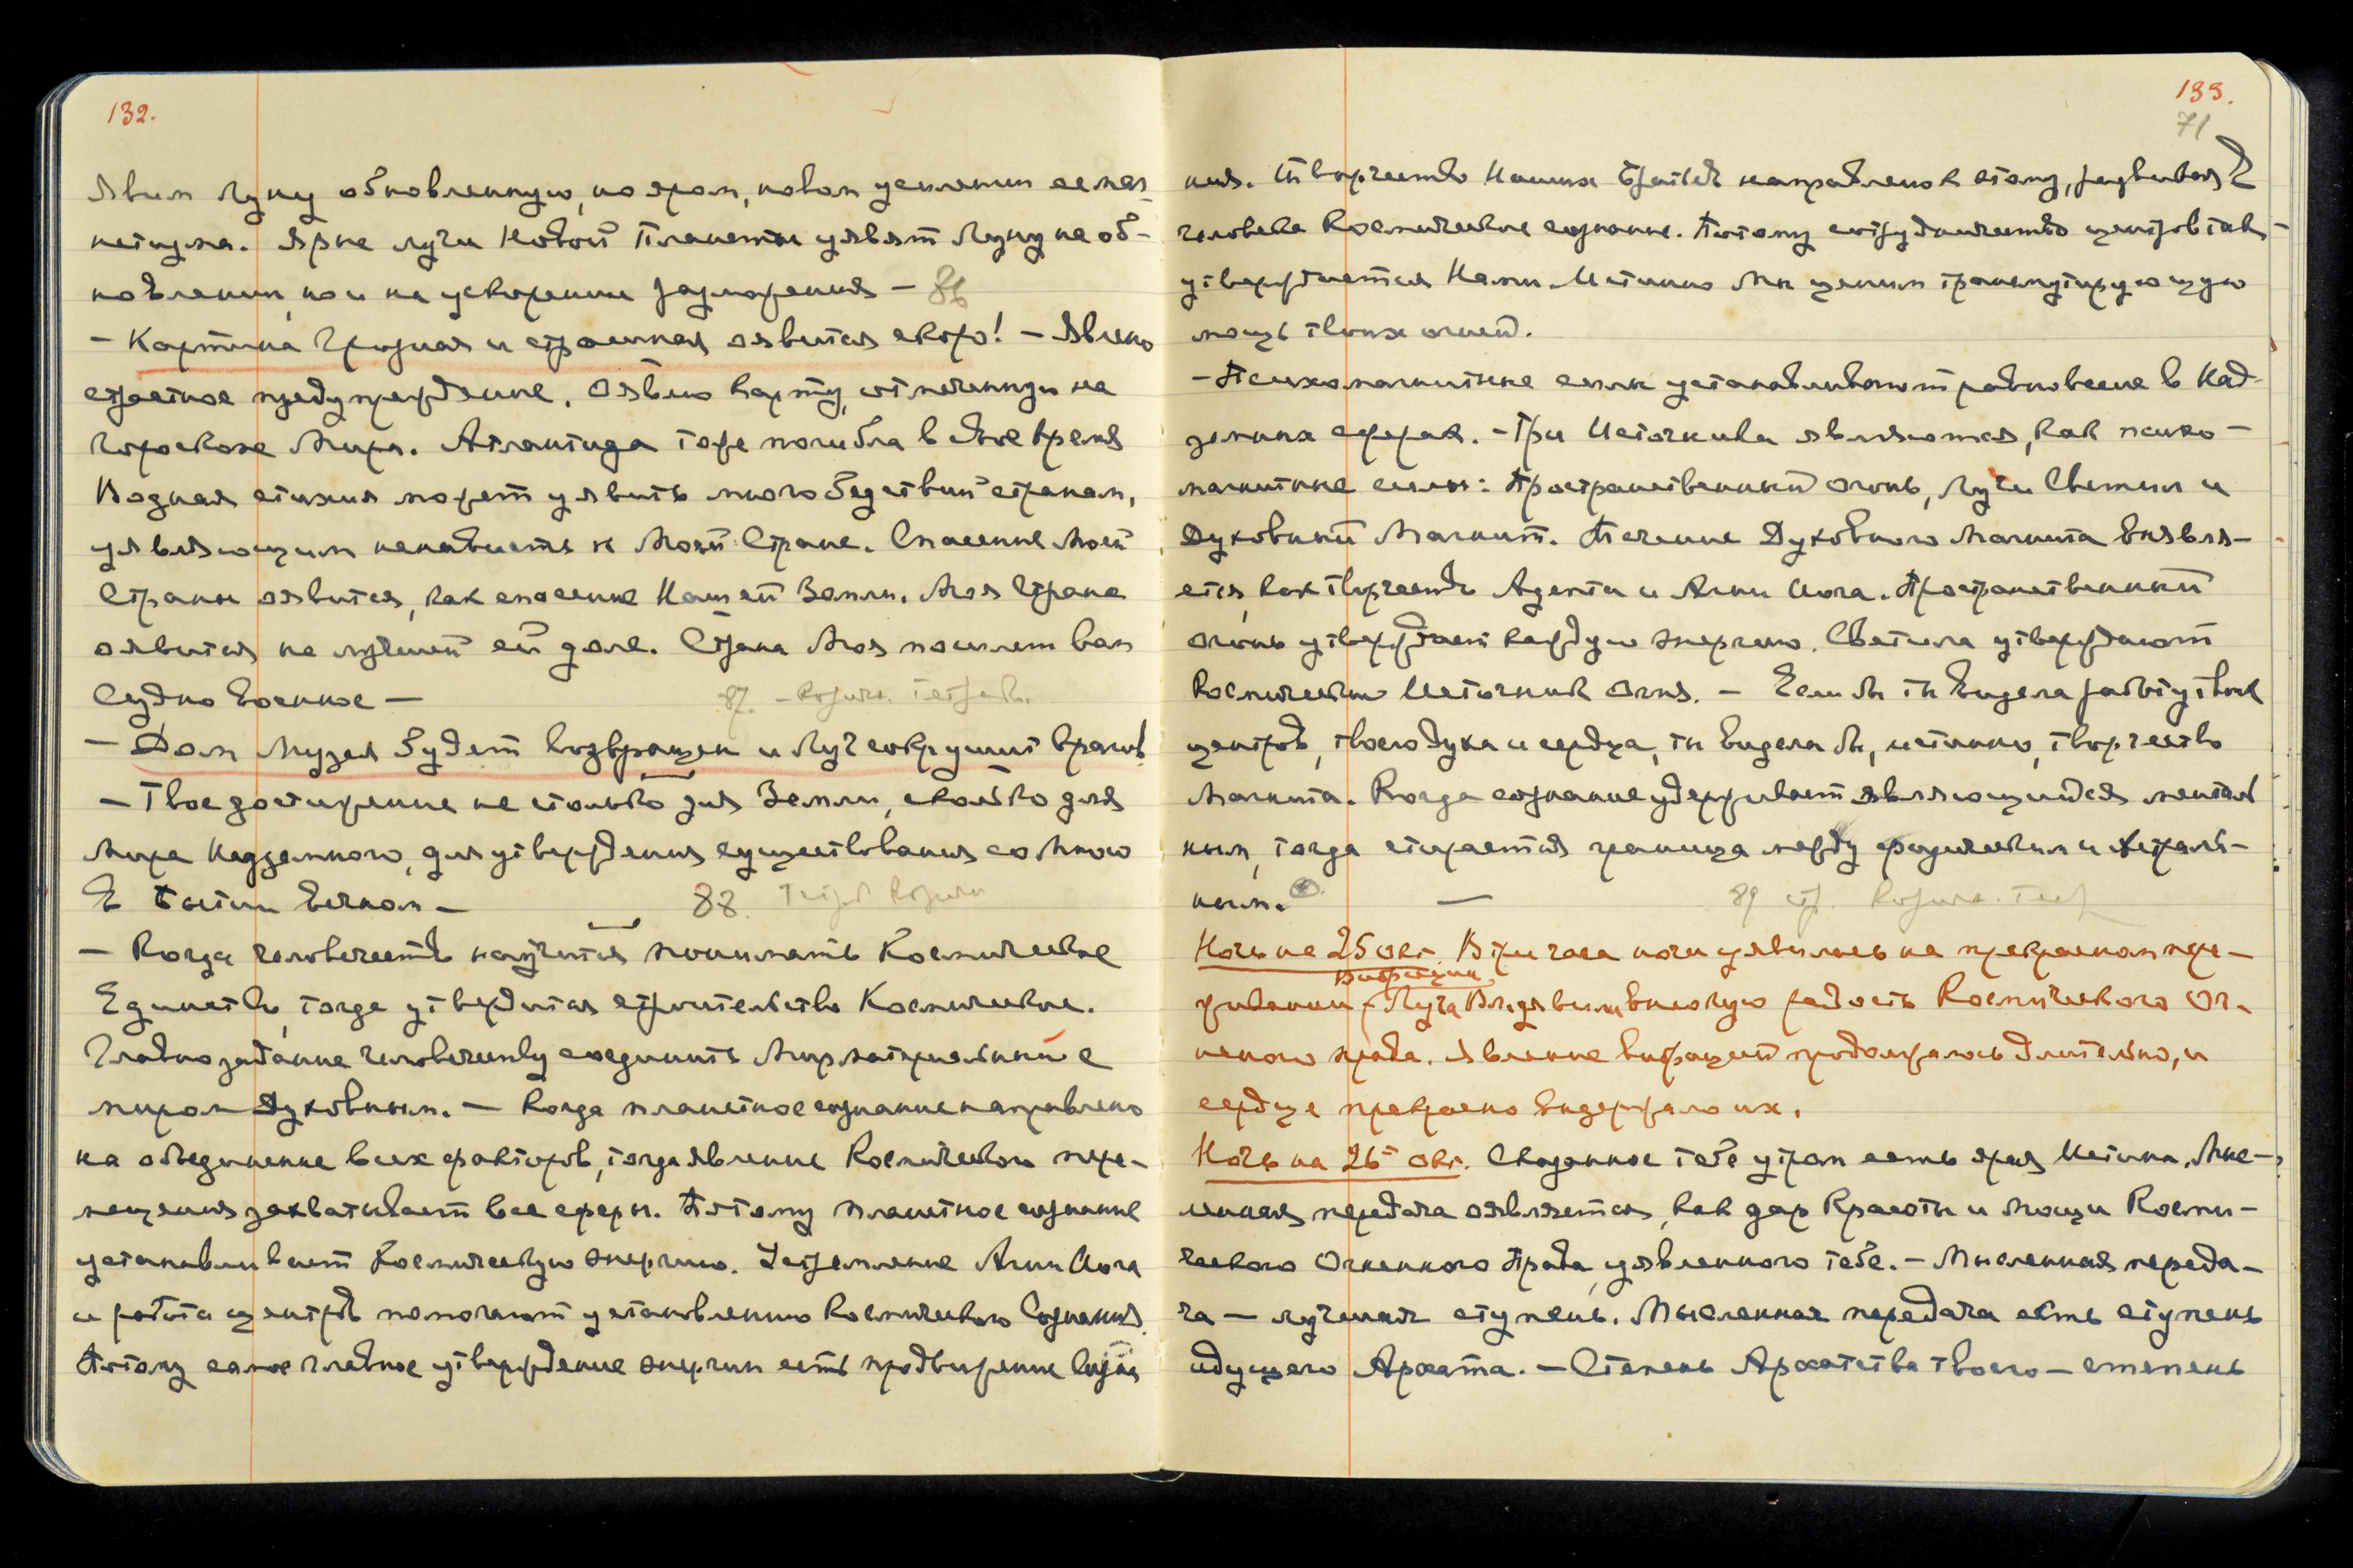 132.
Явим Луну обновленную, но яром, новом усилении ее маг-
нетизма. Ярые лучи Новой Планеты уявят Луну на об-
новлении, но и на ускорении разложения — 86
— Картина Грозная и страшная оявится скоро! — Явлено
страстное предупреждение. Оявлю карту, отмеченную на
Гороскопе Мира. Атлантида тоже погибла в свое время
Водная стихия может уявить много бедствий странам,
уявляющим ненависть к Моей Стране. Спасение Моей
Страны оявится, как спасение Нашей Земли. Моя Страна
оявится на лучшей ей доле. Страна Моя пошлет вам
Судно военное — 87. — Космич. тетрадь.
— Дом Музея будет возвращен и Луч сокрушит врагов.
— Твое достижение не столько для Земли, сколько для
Мира Надземного, для утверждения существования со Мною
в Бытии вечном — 88.
— Когда человечество научится понимать Космическое
Единство, тогда утвердится строительство Космическое.
Главно задание человечеству соединить Мир материальный с
миром Духовным. — Когда планетное сознание направлено
на объединение всех факторов, тогда явление Космического пере-
мещения захватывает все сферы. Потому планетное сознание
устанавливает Космическую энергию. Устремление Агни Йога
и работа центров помогают установлению Космического Сознания.
Потому самое главное утверждение энергии есть продвижение Созна
133.
71
ния. Творчество Наших Братьев направлено к этому, развивая в
человеке Космическое сознание. Потому сотрудничество центров так
утверждается Нами. Истинно Мы ценим трансмутирующую
мощь твоих огней.
— Психомагнитные силы устанавливают равновесие в Над-
земных сферах. — Три Источника являются, как психо-
магнитные силы: Пространственный огонь, Лучи Светил и
Духовный Магнит. Течение Духовного Магнита выявля-
ется, как творчество Адепта и Агни Йога. Пространственный
огонь утверждает каждую энергию. Светила утверждают
Космический Источник Огня. — Если бы ты видела работу твоих
центров, твоего духа и сердца, ты видела бы, истинно, творчество
Магнита. Когда сознание удерживает являющийся менталь
ным, тогда стирается граница между физическим и Астраль-
ным. — 89 стр. Космич. тетр
Ночь на 25 окт. В три часа ночи уявилось на прекрасном пере-
Вибрации
живании — Луча Влад. явили высокую радость Космического Ог-
ненного права. Явление вибраций продолжалось длительно, и
сердце прекрасно выдержало их.
Ночь на 26 окт. Сказанное тебе утром есть ярая Истина. Мыс-
ленная передача оявляется, как дар Красоты и мощи Косми-
ческого Огненного Права, уявленного тебе. — Мысленная переда-
ча — лучшая ступень. Мысленная передача есть ступень
идущего Архата. — Степень Архатства твоего — степень